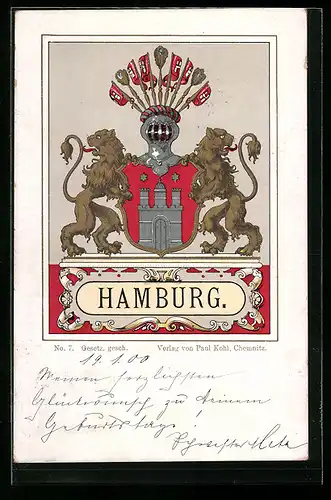 HAMBURG.
No. 7. Gesetz. gesch. Verlag von Paul Kohl, Chemnitz.
19.1.00
Meinen herzlichsten
Glückwunsch zu deinem
Geburtstage!
Schwester Meta